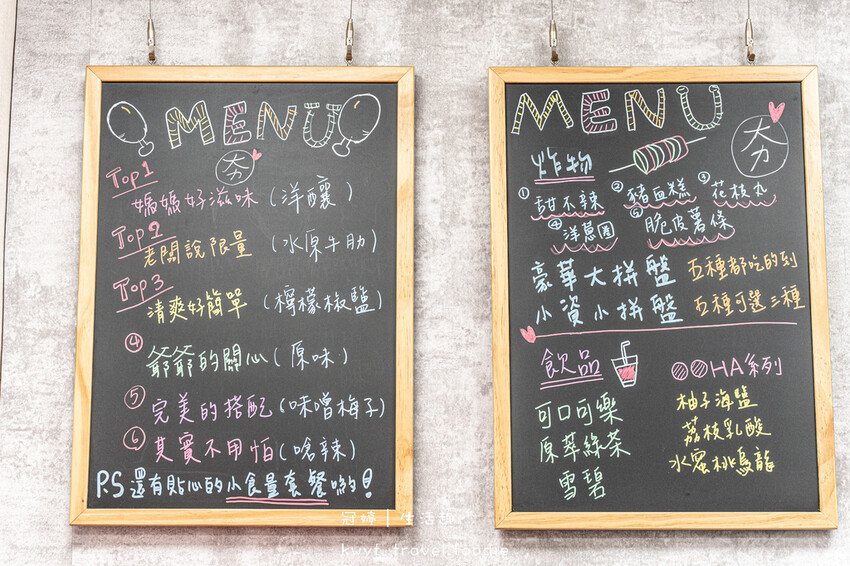 MENU
夯
Top1
媽媽好滋味(洋釀)
Top2
老闆說限量(水原牛肋)
Top3
清爽好簡單(檸檬椒鹽)
④爺爺的關心(原味)
⑤完美的搭配(味噌梅子)
⑥其實不用怕(嗆辣)
P.S還有貼心的小食量套餐喲!
MENU
夯
炸物
①甜不辣 ②豬血糕 ③花枝丸
④洋蔥圈 ⑤脆皮薯條
豪華大拼盤 五種都吃的到
小資小拼盤 五種可選三種
飲品
可口可樂
原萃綠茶
雪碧
HA系列
柚子海鹽
荔枝乳酸
水蜜桃烏龍
kwyf travel.foodie